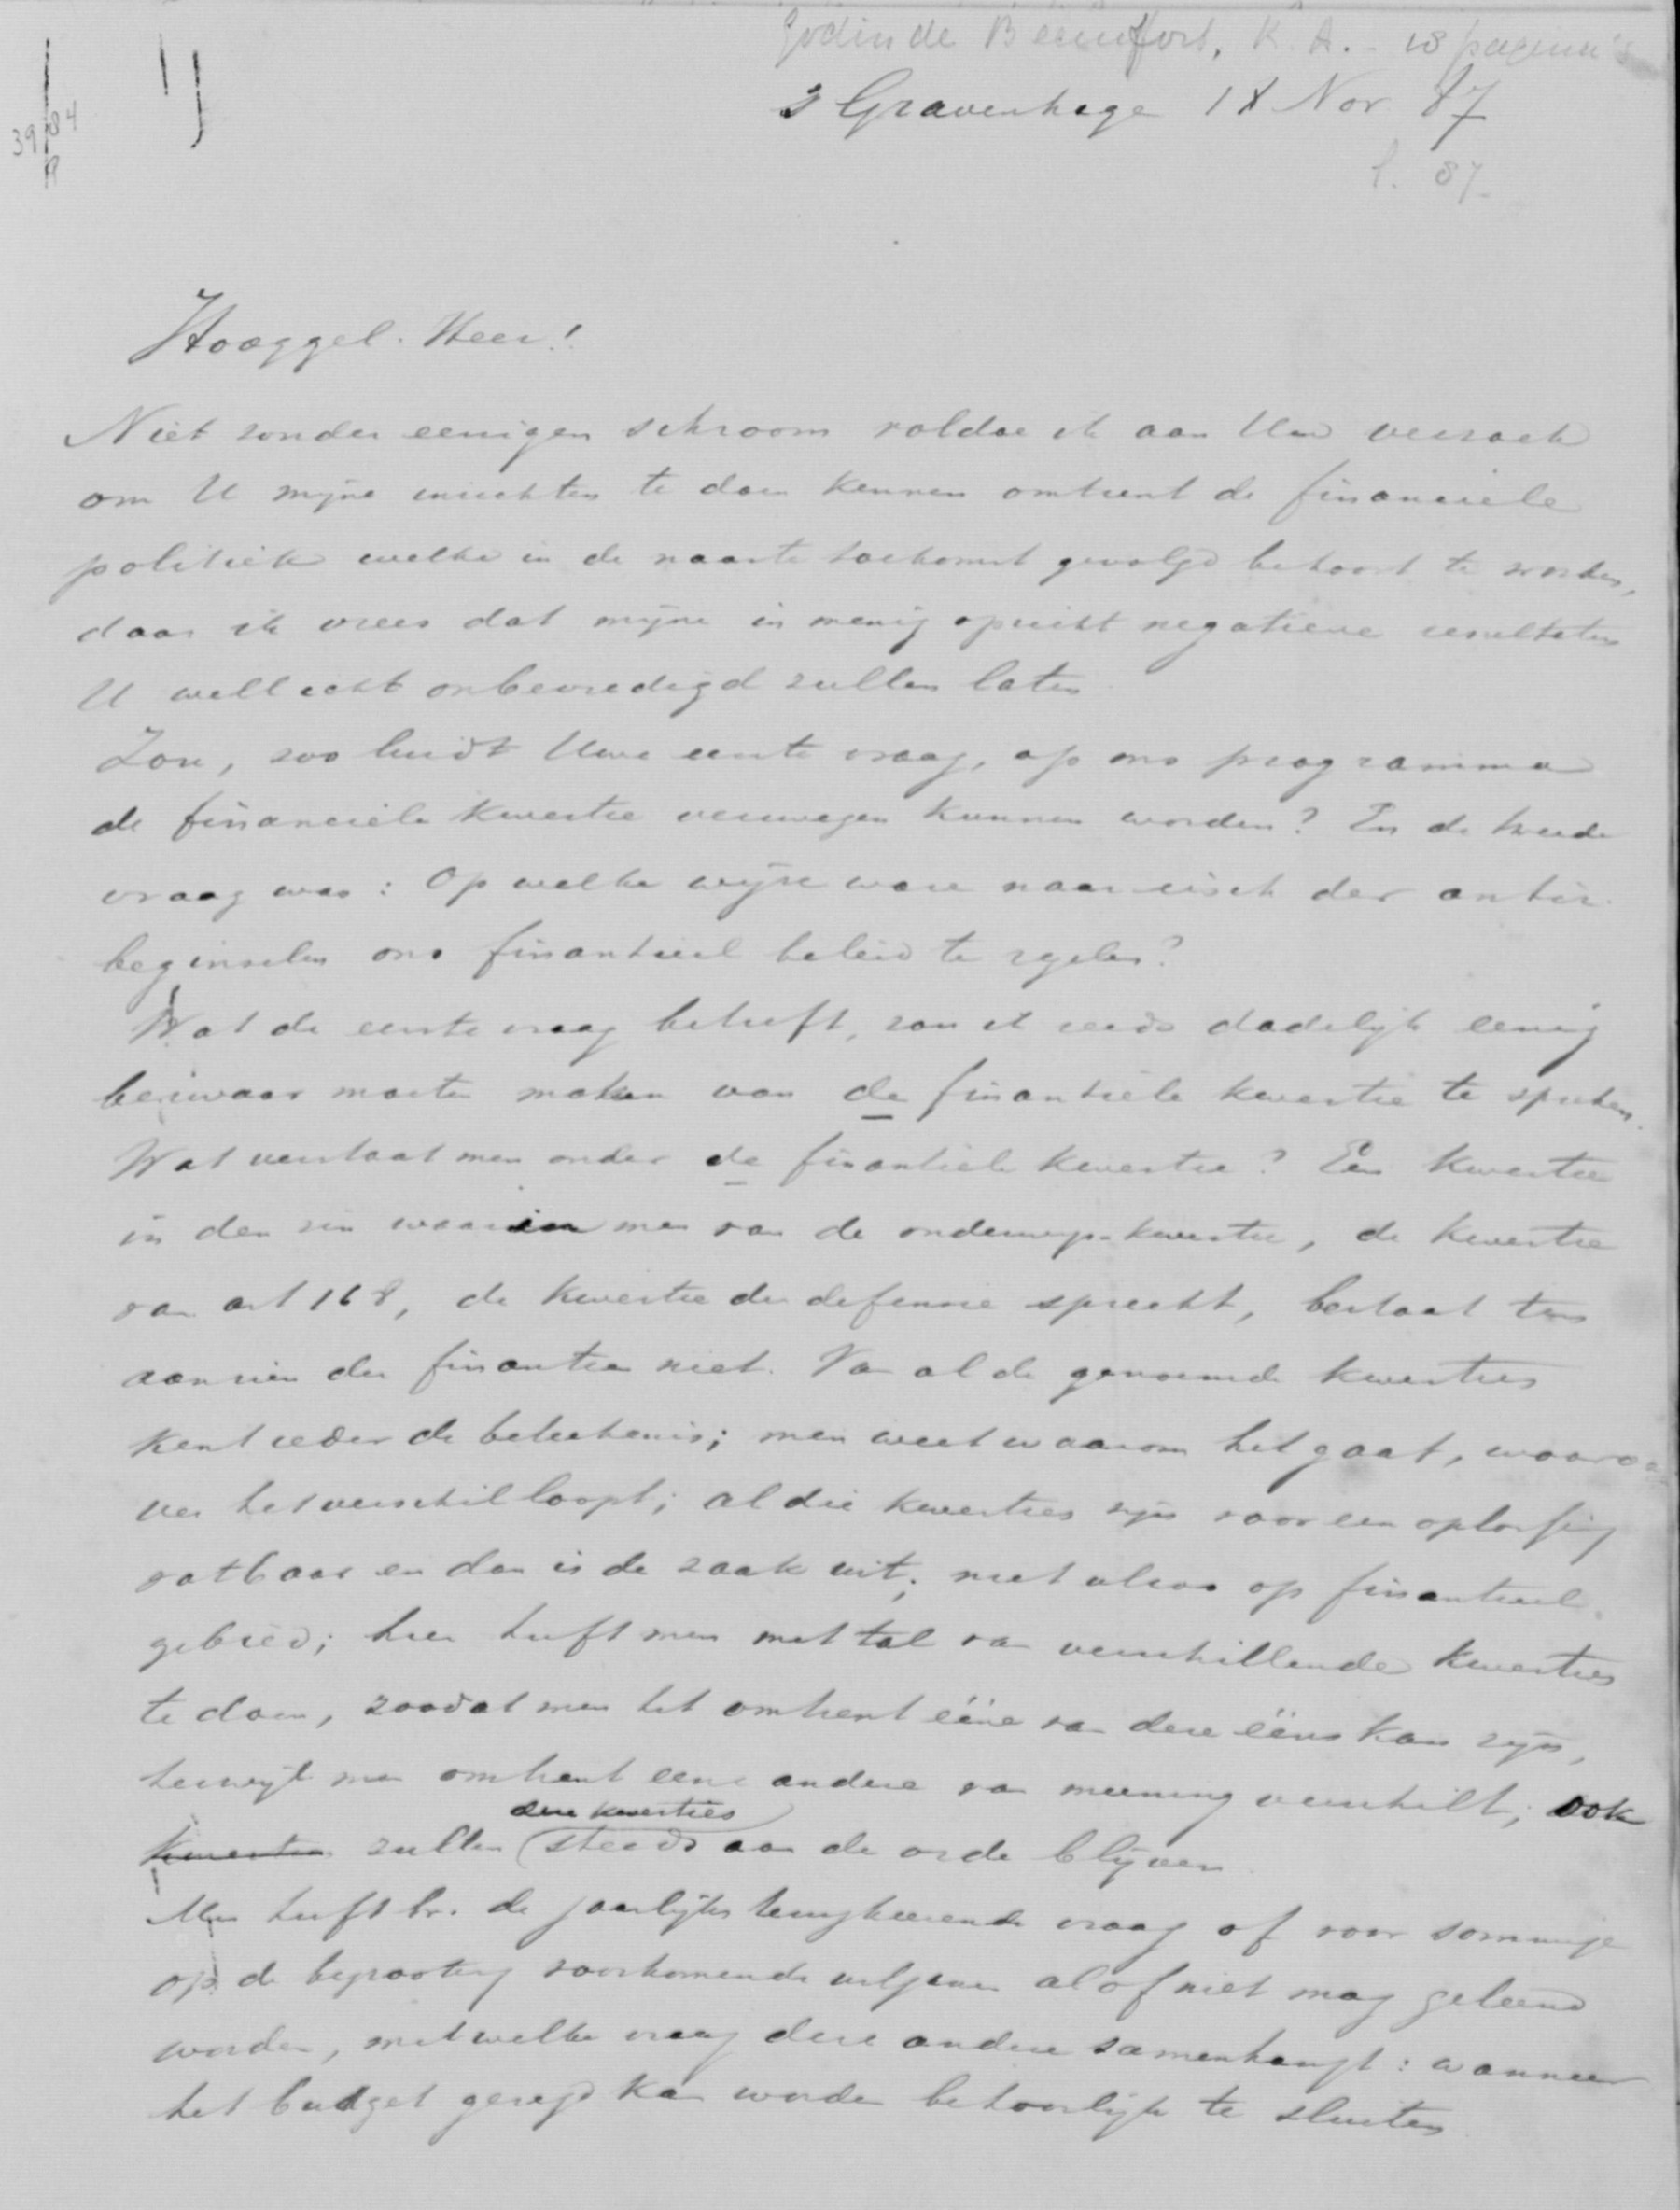 Godin de Beaufort, K. A. - 18 pagina's
39/84
R
s Gravenhage 18 Nov. 87
f. 87
Hooggel. Heer!
Niet zonder eenigen schroom voldoe ik aan Uw verzoek
om U mijne inzichten te doen kennen omtrent de financiele
politiek welke in de naaste toekomst gevolgd behoort te worden,
daar ik vrees dat mijne in menig opzicht negatieve resultaten
U wellicht onbevredigd zullen laten.
Zou, zoo luidt Uwe eerste vraag, op ons programma
de financiele kwestie verzwegen kunnen worden? En de tweede
vraag was: Op welke wijze ware naar eisch der antir.
beginselen ons finantieel beleid te regelen?
Wat de eerste vraag betreft, zou ik reeds dadelijk eenig
bezwaar moeten maken van de finantiele kwestie te spreken.
Wat verstaat men onder de finantiele kwestie? Een kwestie
in den zin waarin men van de onderwijs-kwestie, de kwestie
van art 168, de kwestie der defensie spreekt, bestaat ten
aanzien der finantien niet. Van al de genoemde kwesties
kent ieder de beteekenis; men weet waarom het gaat, waaro-
ver het verschil loopt; al die kwesties zijn voor een oplossing
vatbaar en dan is de zaak uit; niet alzoo op finantieel
gebied; hier heeft men met tal van verschillende kwesties
te doen, zoodat men het omtrent ééne van deze ééns kan zijn,
terwijl men omtrent eene andere van meening verschilt; ook
kwesties zullen deze kwesties steeds aan de orde blijven.
Men heeft bv. de jaarlijks terugkeerende vraag of voor sommige
op de begrooting voorkomende uitgaven al of niet mag geleend
worden, met welke vraag deze andere samenhangt: wanneer
het budget gezegd kan worden behoorlijk te sluiten